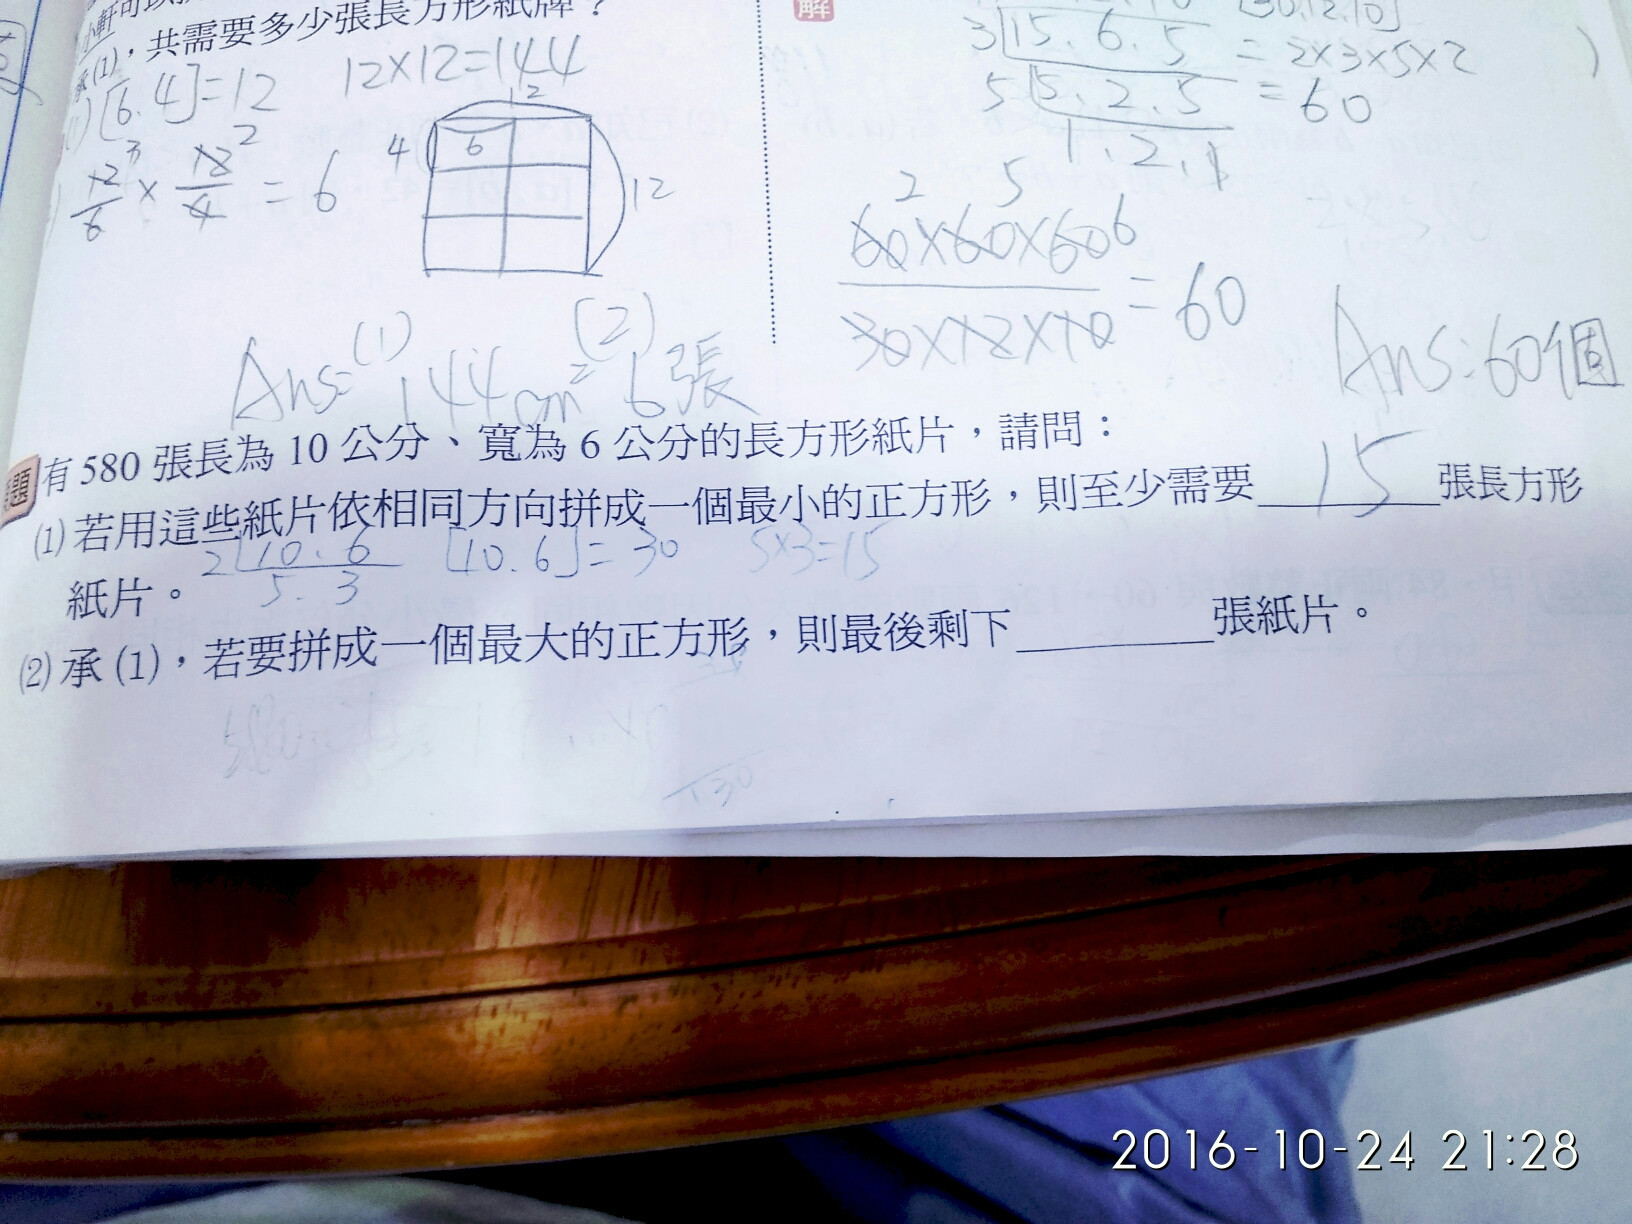 承(1)，共需要多少張長方形紙牌？
[6.4]=12
12×12=144
12
4
6
12
12/6 × 12/4 = 6
3
2
Ans:(1) 144cm² (2) 6張
解
[30,12,10]
3 15.6.5 = 2×3×5×2
5 5.2.5 = 60
1.2.1
2 5 6
60×60×60
30×12×10
= 60
Ans:60個
有 580 張長為 10 公分、寬為 6 公分的長方形紙片，請問：
(1) 若用這些紙片依相同方向拼成一個最小的正方形，則至少需要 15 張長方形
2 10.6 [10.6]=30 5×3=15
5.3
紙片。
(2) 承 (1)，若要拼成一個最大的正方形，則最後剩下______張紙片。
2016-10-24 21:28